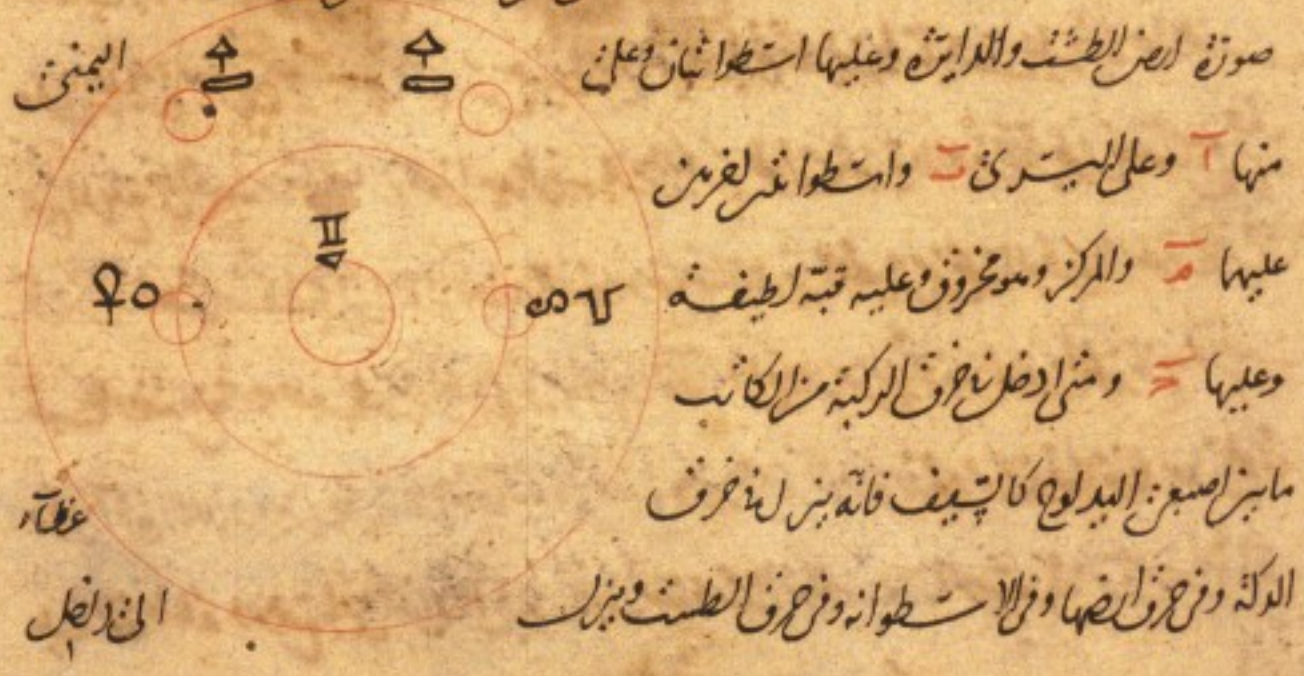 صورة ارض الطشت والدايرة وعليها اسطوانتان وعلى اليمنى
منها آ وعلى اليسرى ب واسطوانتين اخريين
عليهما م والمركز وهو مخروق وعليه قبة لطيفة
وعليها د ومتى ادخل في خرق الدكة من الكاتب
ما بين اصبعي اليد لوح كالسيف فانه ينزل في خرق
الدكة وفي خرق ارضها وفي الاسطوانه وفي خرق الطست وينزل الى داخل